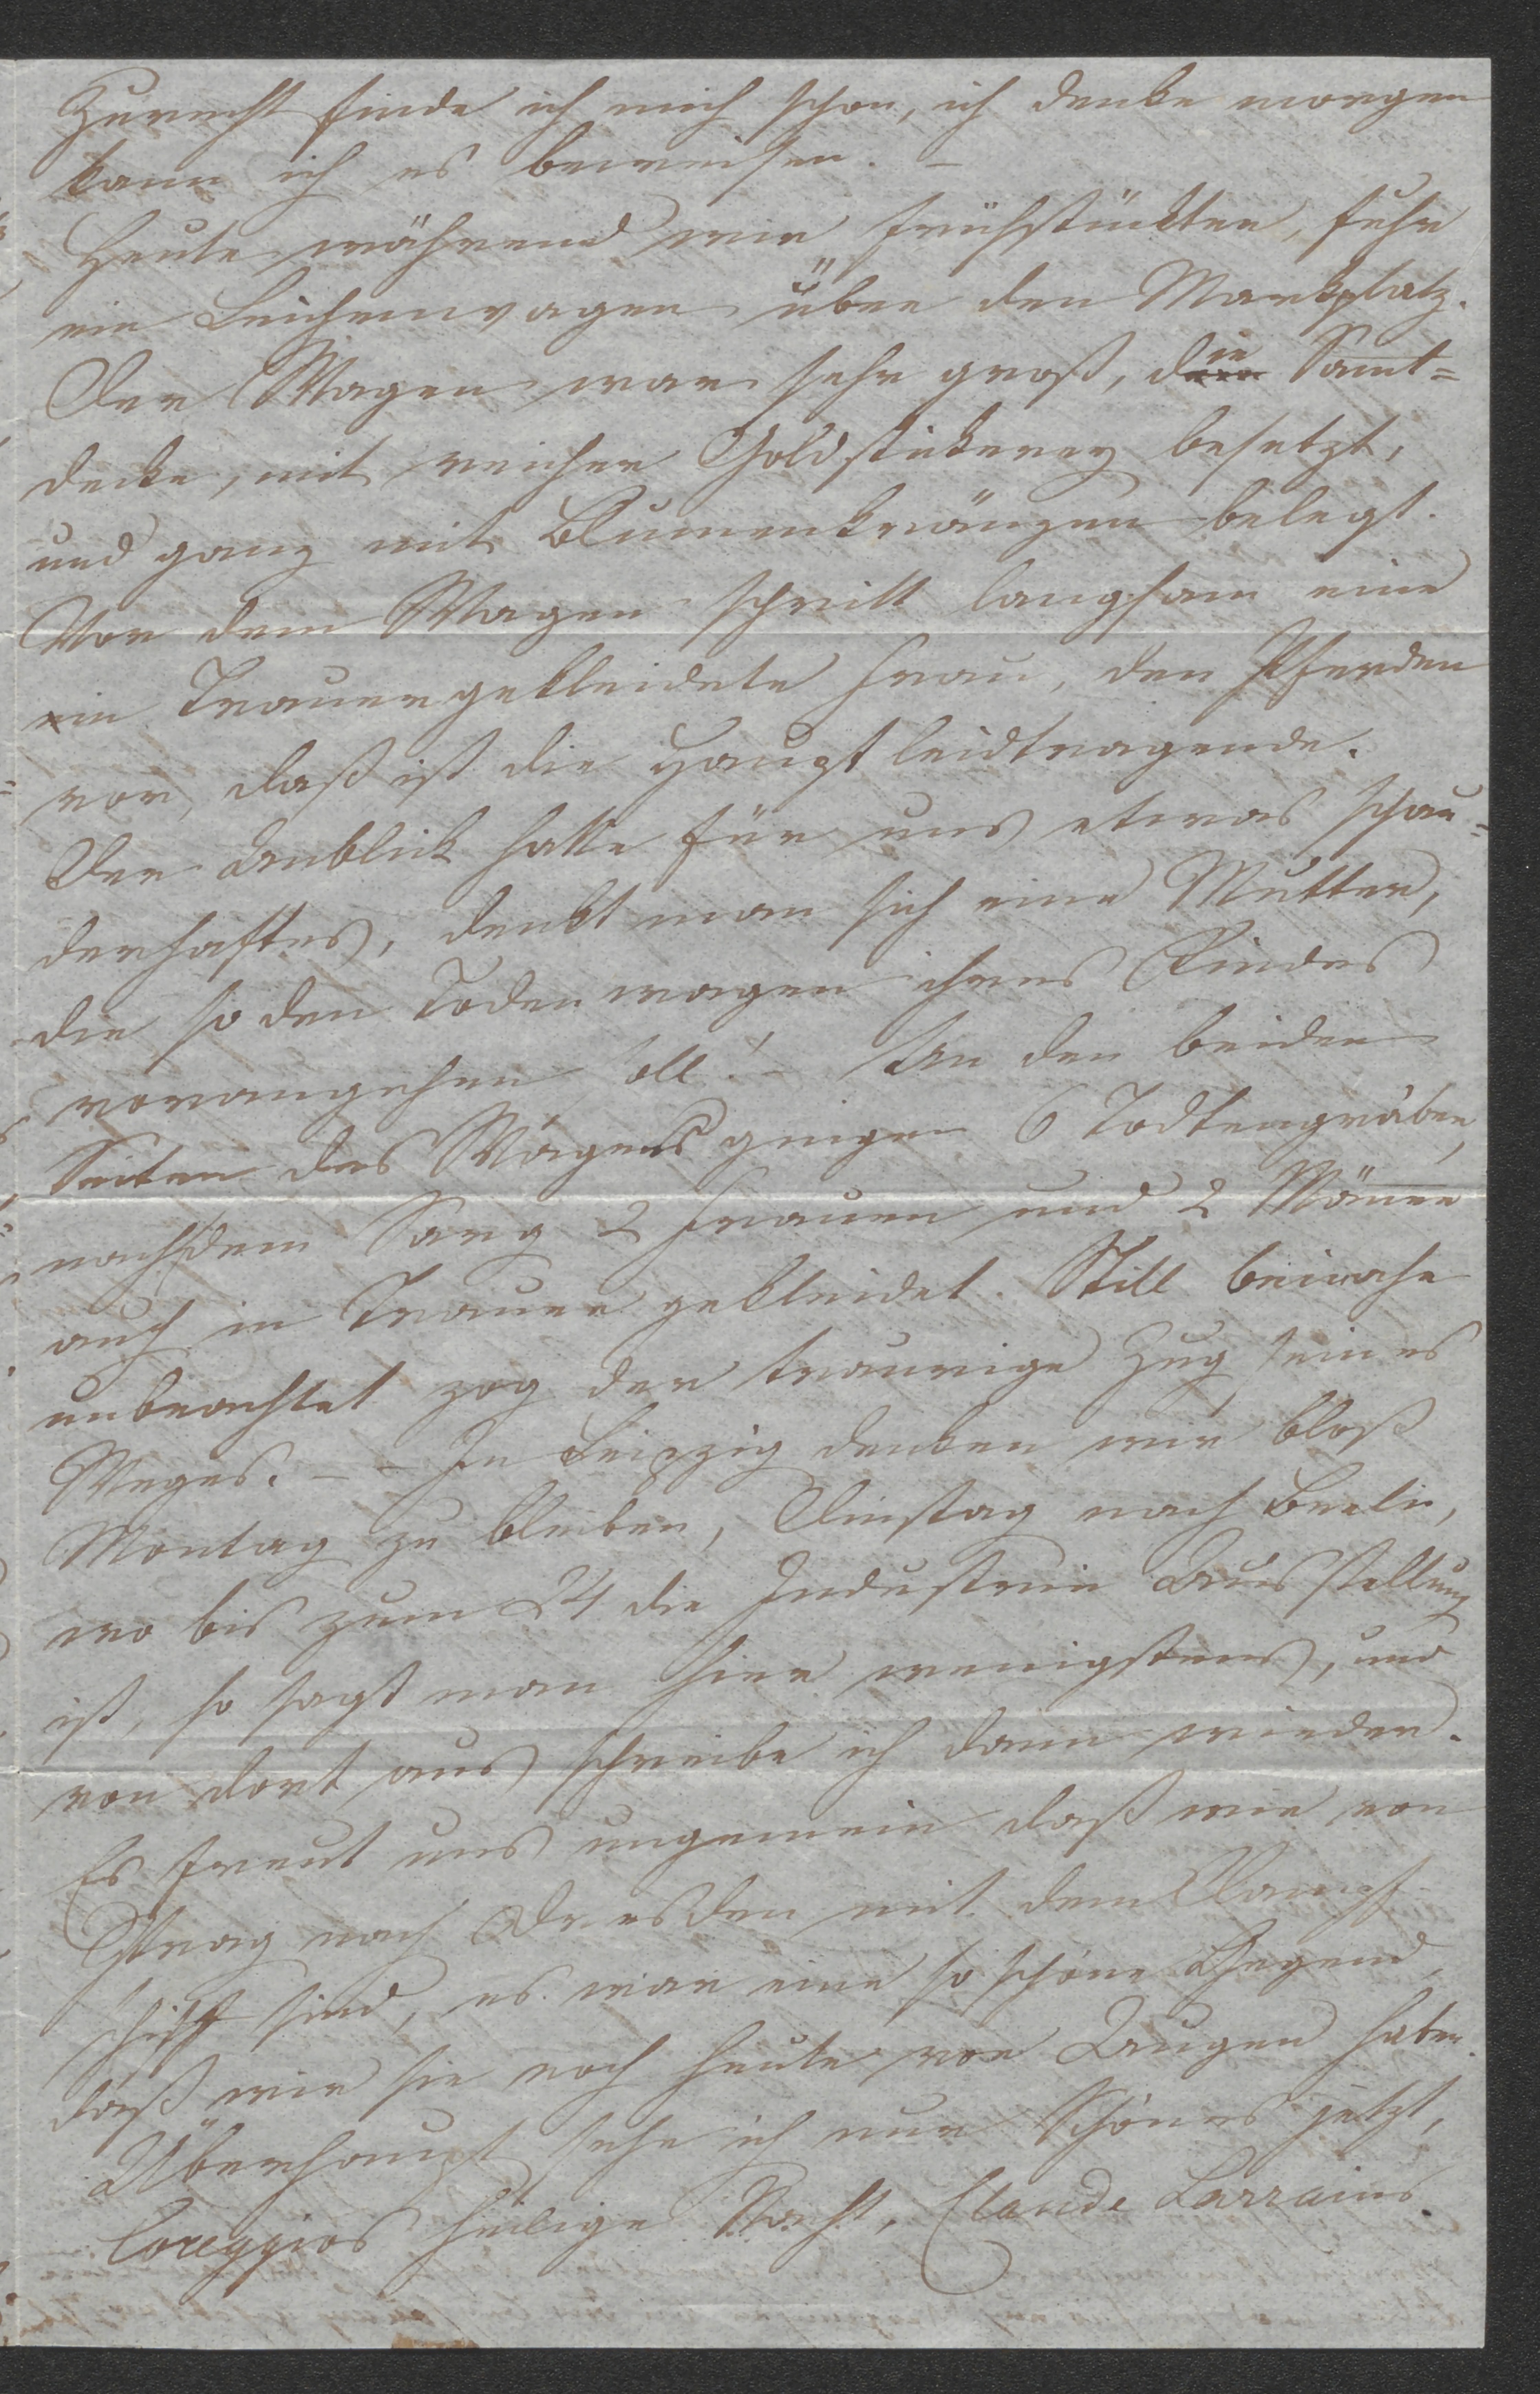 Zurecht finde ich mich schon, ich denke morgen
kann ich es beweisen. –
Heute während wir frühstückten, fuhr
ein Leichenwagen über den Markplatz.
Der Wagen war sehr groß, die Samt=
decke, mit reicher Goldstickerey besetzt,
und ganz mit Blumenkränzen belegt.
Vor dem Wagen schritt langsam eine
in Trauer gekleidete Frau, den Pferden
vor, daß ist die Haupt leidtragende.
Der Anblick hatte für uns etwas schau=
derhaftes, denkt man sich eine Mutter,
die so den Toden wagen ihres Kindes
vorangehen soll! – An den beiden
Seiten des Wagens gingen 6 Todtengräber,
nach dem Sarg 2 Frauen und 2 Männer
auch in Trauer gekleidet. Still beinahe
unbeachtet zog der traurige Zug seines
Weges. – – In Leipzig denken wir bloß
Montag zu bleiben, Dinstag nach Berlin,
wo bis zum 24 die Industrie Ausstellung
ist, so sagt man hier wenigstens, und
von dort aus schreibe ich dann wieder.
Es freut uns ungemein daß wir von
Prag nach Dresden mit dem Dampf
schiff sind, es war eine so schöne Gegend,
daß wir sie noch heute vor Augen haben.
Überhaupt sehe ich nur Schönes jetzt,
Coreggios heilige Nacht, Claude Larrains